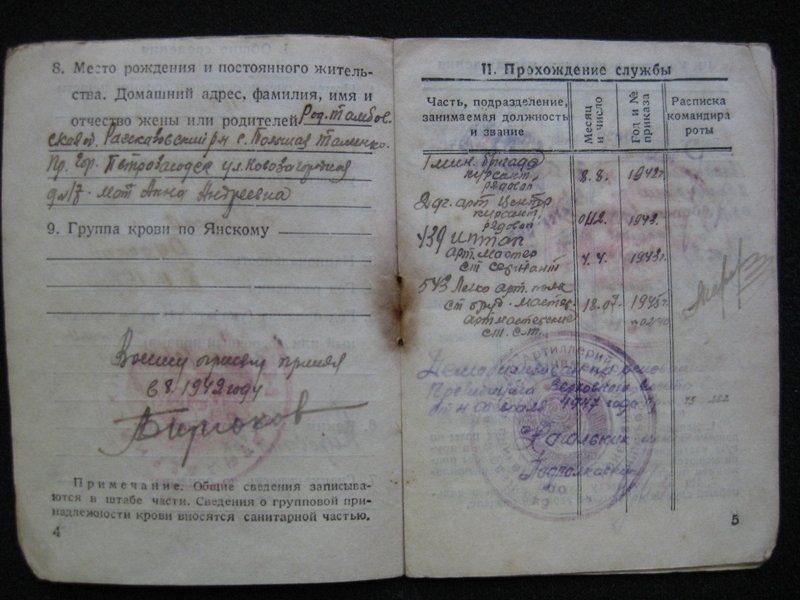 8. Место рождения и постоянного житель-
ства. Домашний адрес, фамилия, имя и
отчество жены или родителей Род. Тамбов-
ской о. Рассказовский рн с.
гор. Петрозаводск ул. Новозагородная
д. 17. мат Анна Андреевна
9. Группа крови по Янскому
Военную присягу принял
в 8. 1942 году
Примечание. Общие сведения записыва-
ются в штабе части. Сведения о групповой при-
надлежности крови вносятся санитарной частью.
4
II. Прохождение службы
Часть, подразделение,
занимаемая должность
и звание
Месяц
и число
Год и №
приказа
Расписка
командира
роты
1 мин. бригада
курсант,
рядовой
8.8. 1942г.
арт центр
курсант,
рядовой
1943.
439 иптап
арт. мастер
ст сержант
4.4. 1943г.
543 Легко арт. полк
ст оруд. мастер
18.07. 1945г.
артмастерские
ст. с-т.
Артиллерий
Демобилизован на основании
Президиума Верховного
1947 года
Начальник
Подполковник
5